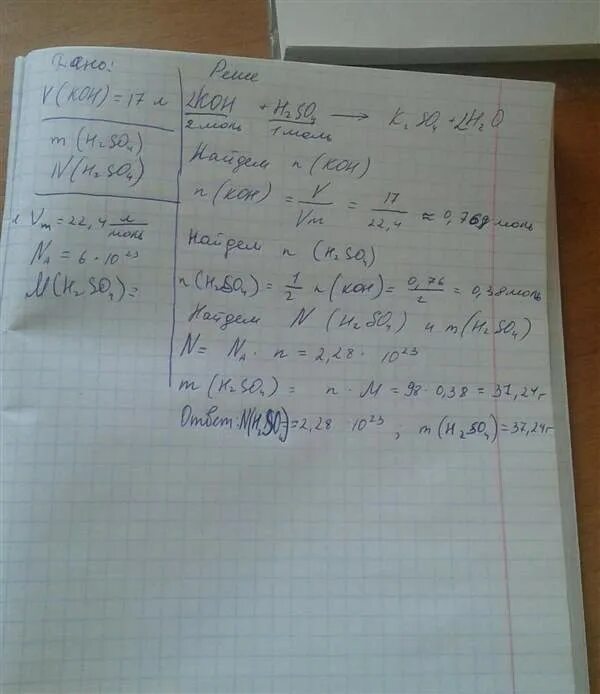 Дано:
V(KOH) = 17 л
m(H₂SO₄)
N(H₂SO₄)
Vm = 22,4 л/моль
NA = 6 · 10²³
M(H₂SO₄) =
Реше
2KOH + H₂SO₄ → K₂SO₄ + 2H₂O
2 моль 1 моль
Найдем n(KOH)
n(KOH) = V/Vm = 17/22,4 ≈ 0,76 моль
Найдем n(H₂SO₄)
n(H₂SO₄) = 1/2 n(KOH) = 0,76/2 = 0,38 моль
Найдем N(H₂SO₄) и m(H₂SO₄)
N = NA · n = 2,28 · 10²³
m(H₂SO₄) = n · M = 98 · 0,38 = 37,24 г
Ответ: N(H₂SO₄) = 2,28 10²³ ; m(H₂SO₄) = 37,24 г